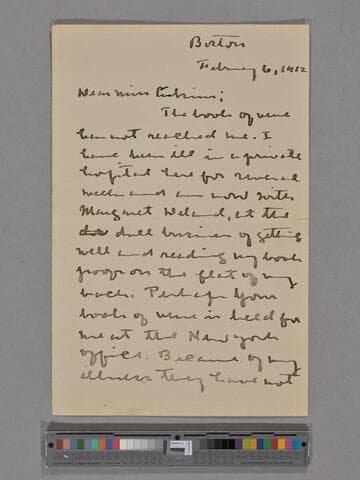 Boston
February 6, 1912
Dear Miss Perkins;
The book of verse
has not reached me. I
have been ill in a private
hospital here for several
weeks and am now with
Margaret Deland, at the
dull business of getting
well and reading my book
proofs on the flat of my
back. Perhaps your
book of verse is held for
me at the New York
office. Because of my
illness they have not